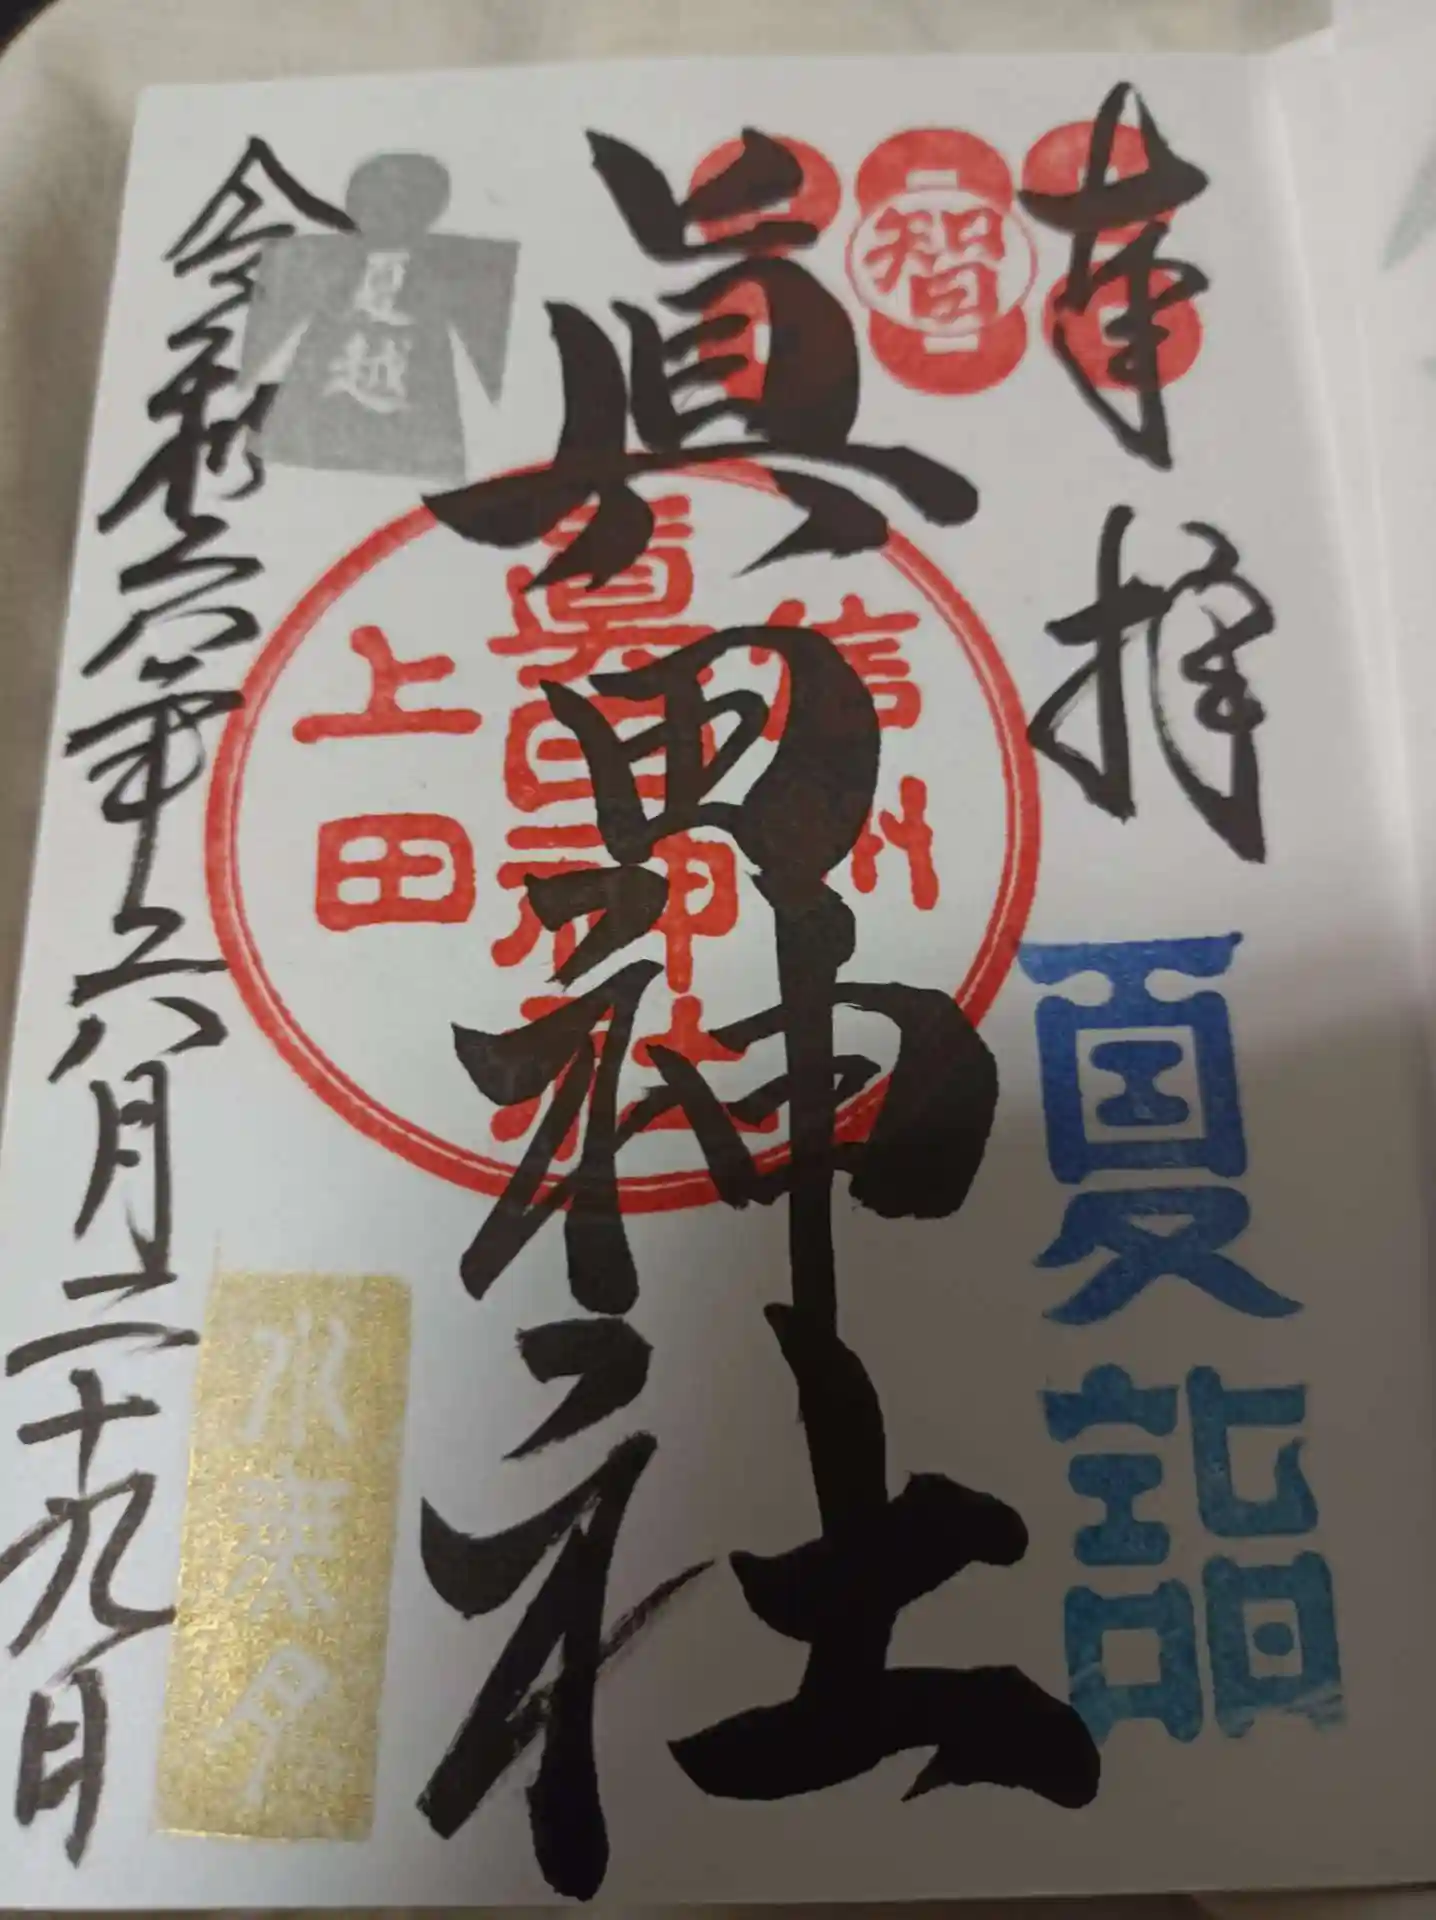 奉拝
夏詣
智
眞田神社
信州
眞田神社
上田
夏越
水無月
令和六年六月二十九日